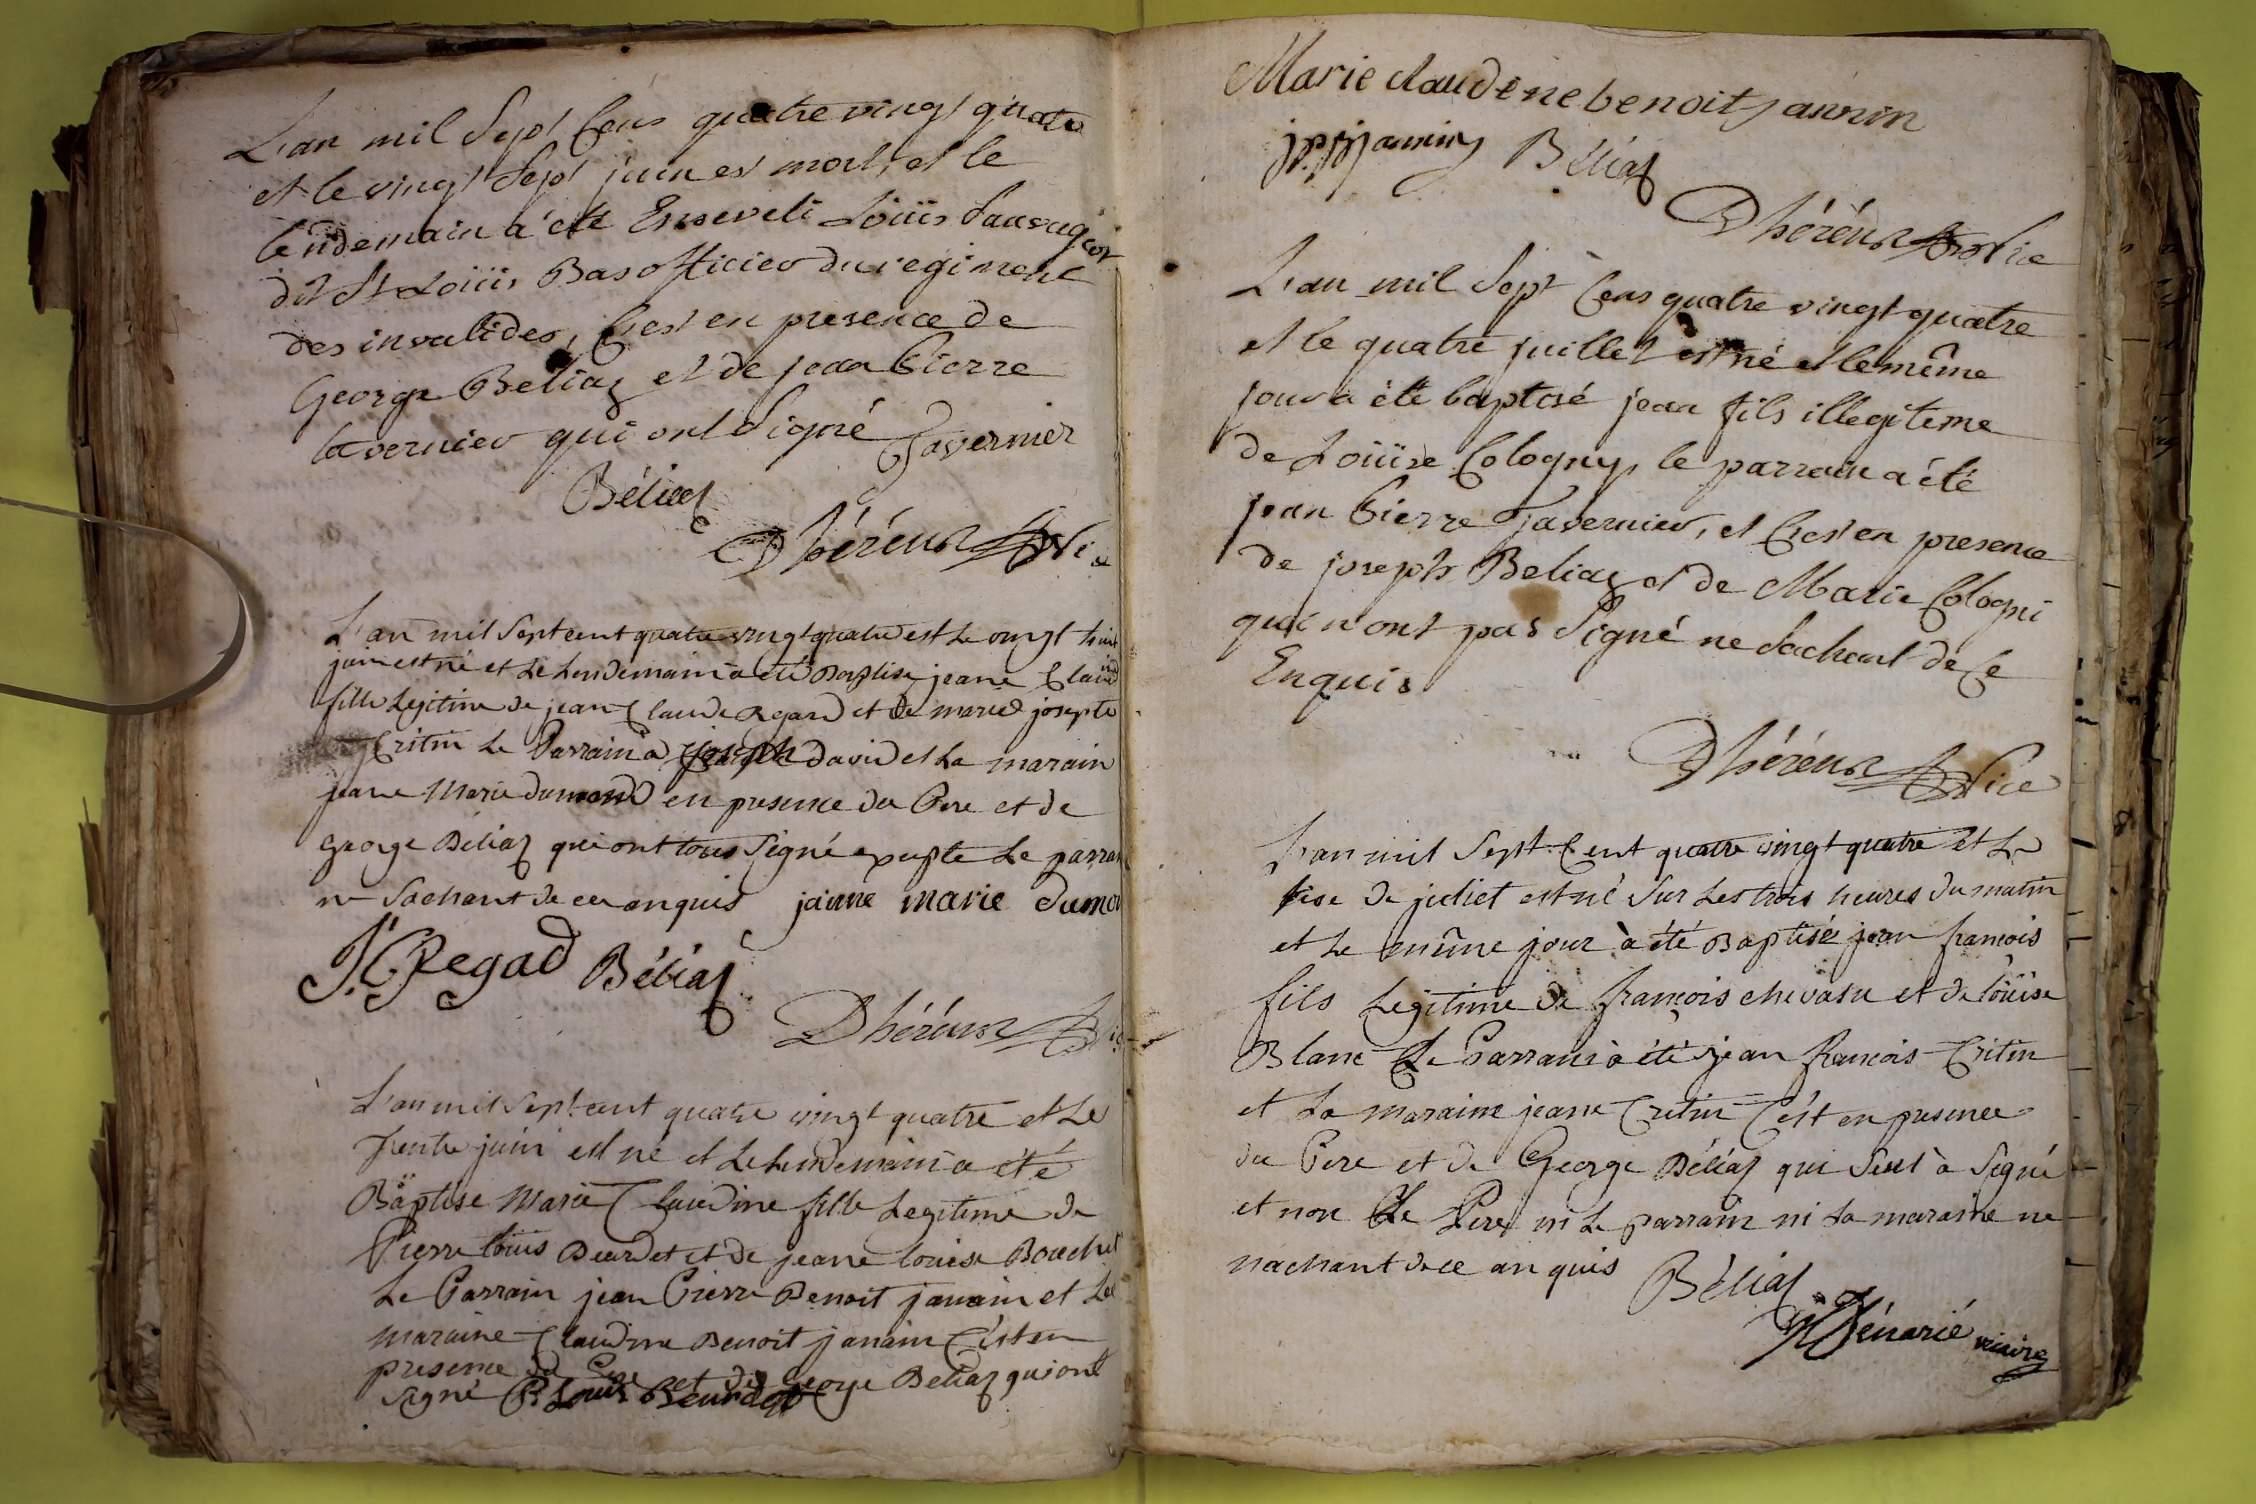 L'an mil Sept Cens quatre vingt quatre
et le vingt Sept juin est mort, et le
lendemain a été Enseveli Loüis
dit St Loüis, Bas officier du regiment
des invalides, C'est en presence de
George Beliaz et de jean Pierre
tavernier qui ont Signé Tavernier
Béliaz
Dhéréur Vice
L'an mil Sept cent quatre vingt quatre est Le vingt huit
juin est né et Le Lendemain a été Baptise jeane Claud
fille Legitime de jean Claude Regard et de marie josepte
Critin Le Parrain a joseph david et La marain
jeane Marie dumond en presence du Pere et de
George Béliaz qui ont tous Signé exepte Le parrain
ne Sachant de ce anquis jaime marie dumon
J. C Regad Béliaz
Dhéréur
L'an mil Sept cent quatre vingt quatre et Le
trente juin est né et Le Lendemain a été
Baptise Marie Claudine fille Legitime de
Pierre louis Beurdet et de jeane louise Bouchet
Le Parrain jean Pierre Benoit janain et La
maraine Claudine Benoit janain C'est en
presence du Pere et de George Beliaz qui ont
Signé P Louis Beurdet
Marie claudine benoit janvrin
j p Bj janniny Béliaz
Dhéréur Vice
L'an mil Sept Cens quatre vingt quatre
et le quatre juillet est né et le même
jour a été baptisé jean fils illegiteme
de Loüise Cologny, le parrain a été
jean Pierre Tavernier, et C'est en presence
de joseph Beliaz et de Marie Cologni
qui n'ont pas Signé ne Sachant de Ce
Enquis
Dhéréur Vice
L'an mil Sept Cent quatre vingt quatre et Le
sise de juliet est né Sur Les trois heures du matin
et Le même jour à été Baptisé jean francois
fils Legitime de françois chevasu et de loüise
Blanc Le Parrain à été jean francois Critin
et La maraine jeane Critin C'est en presence
du Pere et de George Béliaz qui Seul à Signé
et non Le Pere ni Le parrain ni La maraine ne
nachant de ce anquis Béliaz
vicaire